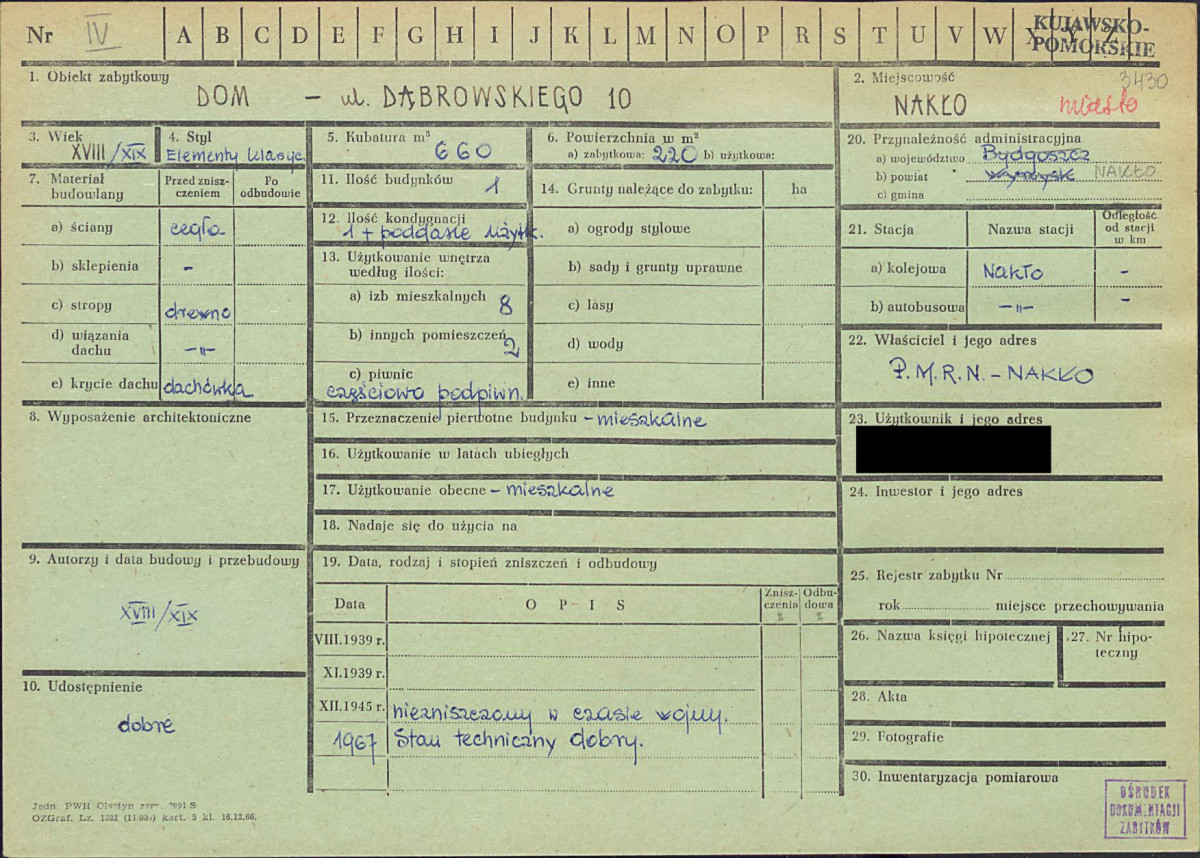 Nr IV A B C D E F G H I J K L M N O P R S T U V W X Y Z
KUJAWSKO-
POMORSKIE
1. Obiekt zabytkowy
DOM – ul. DĄBROWSKIEGO 10
2. Miejscowość
3430
NAKŁO miasto
3. Wiek
XVIII/XIX
4. Styl
Elementy klasyc.
5. Kubatura m³
660
6. Powierzchnia w m²
a) zabytkowa: 220 b) użytkowa:
20. Przynależność administracyjna
a) województwo Bydgoszcz
b) powiat Wyrzysk NAKŁO
c) gmina
7. Materiał
budowlany
Przed znisz-
czeniem
Po
odbudowie
a) ściany cegła
b) sklepienia -
c) stropy drewno
d) wiązania
dachu —„—
e) krycie dachu dachówka
11. Ilość budynków 1
12. Ilość kondygnacji
1 + poddasze użytk.
13. Użytkowanie wnętrza
według ilości:
a) izb mieszkalnych 8
b) innych pomieszczeń 2
c) piwnic
częściowo podpiwn.
14. Grunty należące do zabytku: ha
a) ogrody stylowe
b) sady i grunty uprawne
c) lasy
d) wody
e) inne
21. Stacja
Nazwa stacji
Odległość
od stacji
w km
a) kolejowa Nakło -
b) autobusowa —„— -
22. Właściciel i jego adres
P.M.R.N. - NAKŁO
8. Wyposażenie architektoniczne
15. Przeznaczenie pierwotne budynku - mieszkalne
16. Użytkowanie w latach ubiegłych
17. Użytkowanie obecne - mieszkalne
18. Nadaje się do użycia na
23. Użytkownik i jego adres
24. Inwestor i jego adres
9. Autorzy i data budowy i przebudowy
XVIII/XIX
10. Udostępnienie
dobre
19. Data, rodzaj i stopień zniszczeń i odbudowy
Data
OPIS
Znisz-
czenia
%
Odbu-
dowa
%
VIII.1939 r.
XI.1939 r.
XII.1945 r. niezniszczony w czasie wojny.
1967 Stan techniczny dobry.
25. Rejestr zabytku Nr
rok miejsce przechowywania
26. Nazwa księgi hipotecznej
27. Nr hipo-
teczny
28. Akta
29. Fotografie
30. Inwentaryzacja pomiarowa
OŚRODEK
DOKUMENTACJI
ZABYTKÓW
Jedn. PWH Olsztyn zam. S
OZGraf. Lz. kart. 5 kl. 16.12.66.